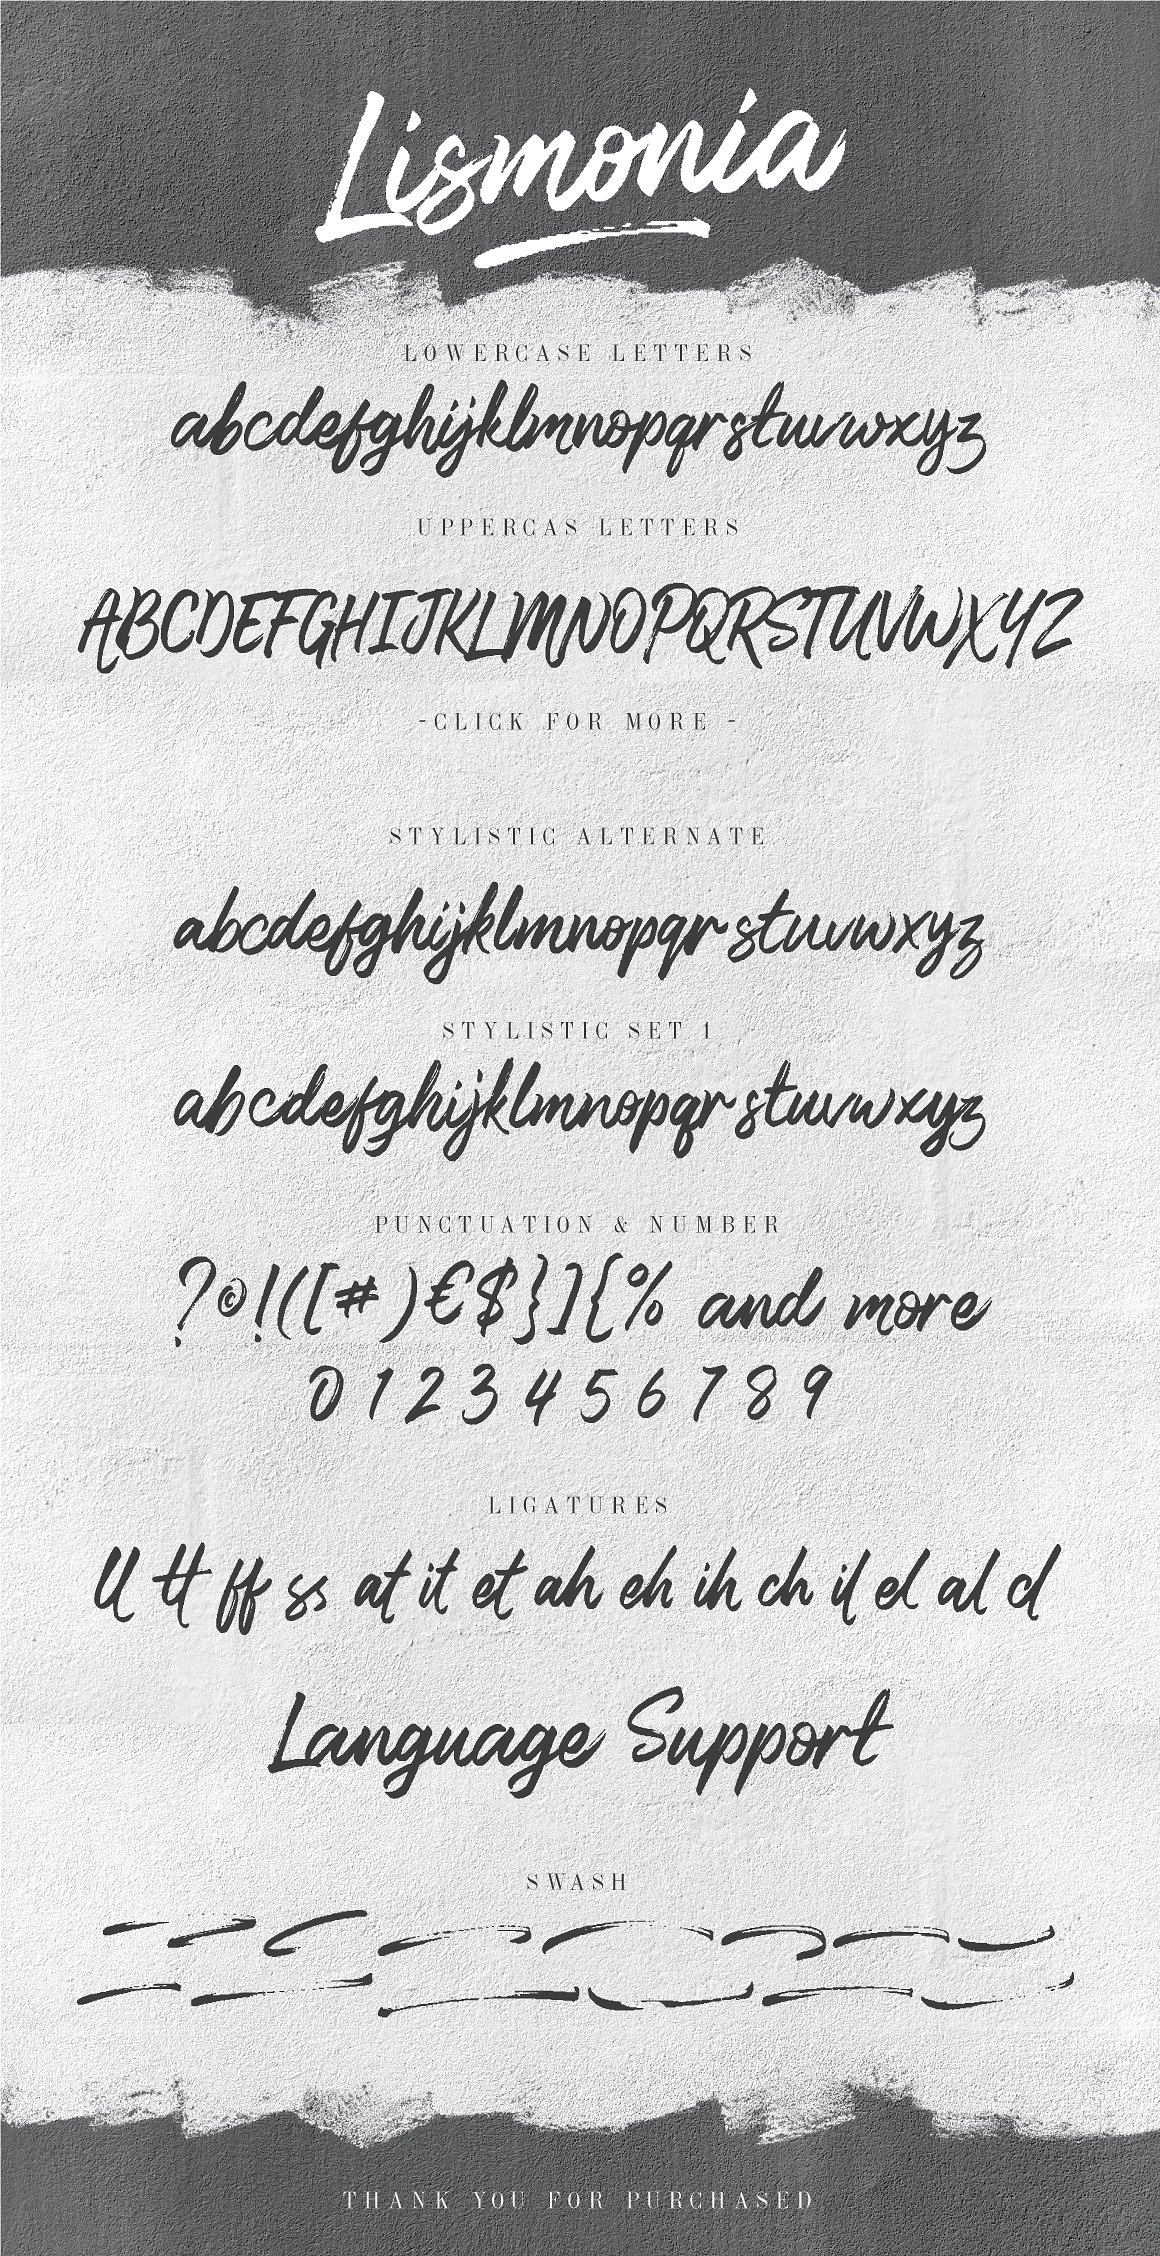 Lismonia
LOWERCASE LETTERS
abcdefghijklmnopqrstuvwxyz
UPPERCAS LETTERS
ABCDEFGHIJKLMNOPQRSTUVWXYZ
-CLICK FOR MORE -
STYLISTIC ALTERNATE
abcdefghijklmnopqrstuvwxyz
STYLISTIC SET 1
abcdefghijklmnopqrstuvwxyz
PUNCTUATION & NUMBER
?©!([#)€$}]{% and more
0 1 2 3 4 5 6 7 8 9
LIGATURES
ll tt ff ss at it et ah eh ih ch il el al cl
Language Support
SWASH
THANK YOU FOR PURCHASED